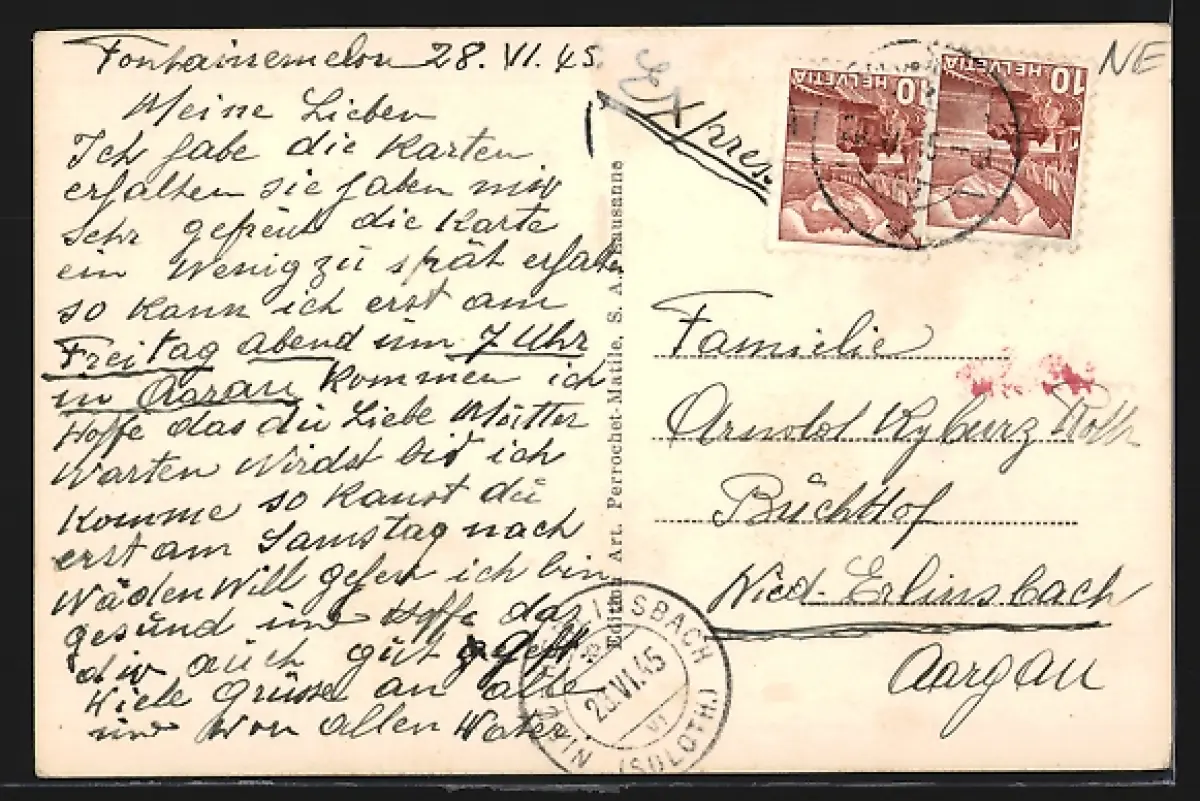 Fontainemelon 28. VI. 45
Meine Lieben
Ich habe die Karten
erhalten sie haben mir
sehr gefreut die Karte
ein Wenig zu spät erhalten
so kann ich erst am
Freitag abend um 7 Uhr
in Aarau kommen ich
Hoffe das du Liebe Mutter
Warten Wirdst bis ich
komme so kanst du
erst am Samstag nach
WädenWill gehen ich bin
gesund und Hoffe das
dir auch gut geht
Viele Grüsse an alle
und Von allen Vater
Edition Art. Perrochet-Matile, S. A. Lausanne
Expres.
NE
10 HELVETIA
10 HELVETIA
Familie
Arnold Kyburz Roth
BuchHof
Nied. Erlinsbach
Aargau
NIEDERERLINSBACH
VI.45
VI
(SOLOTH.)